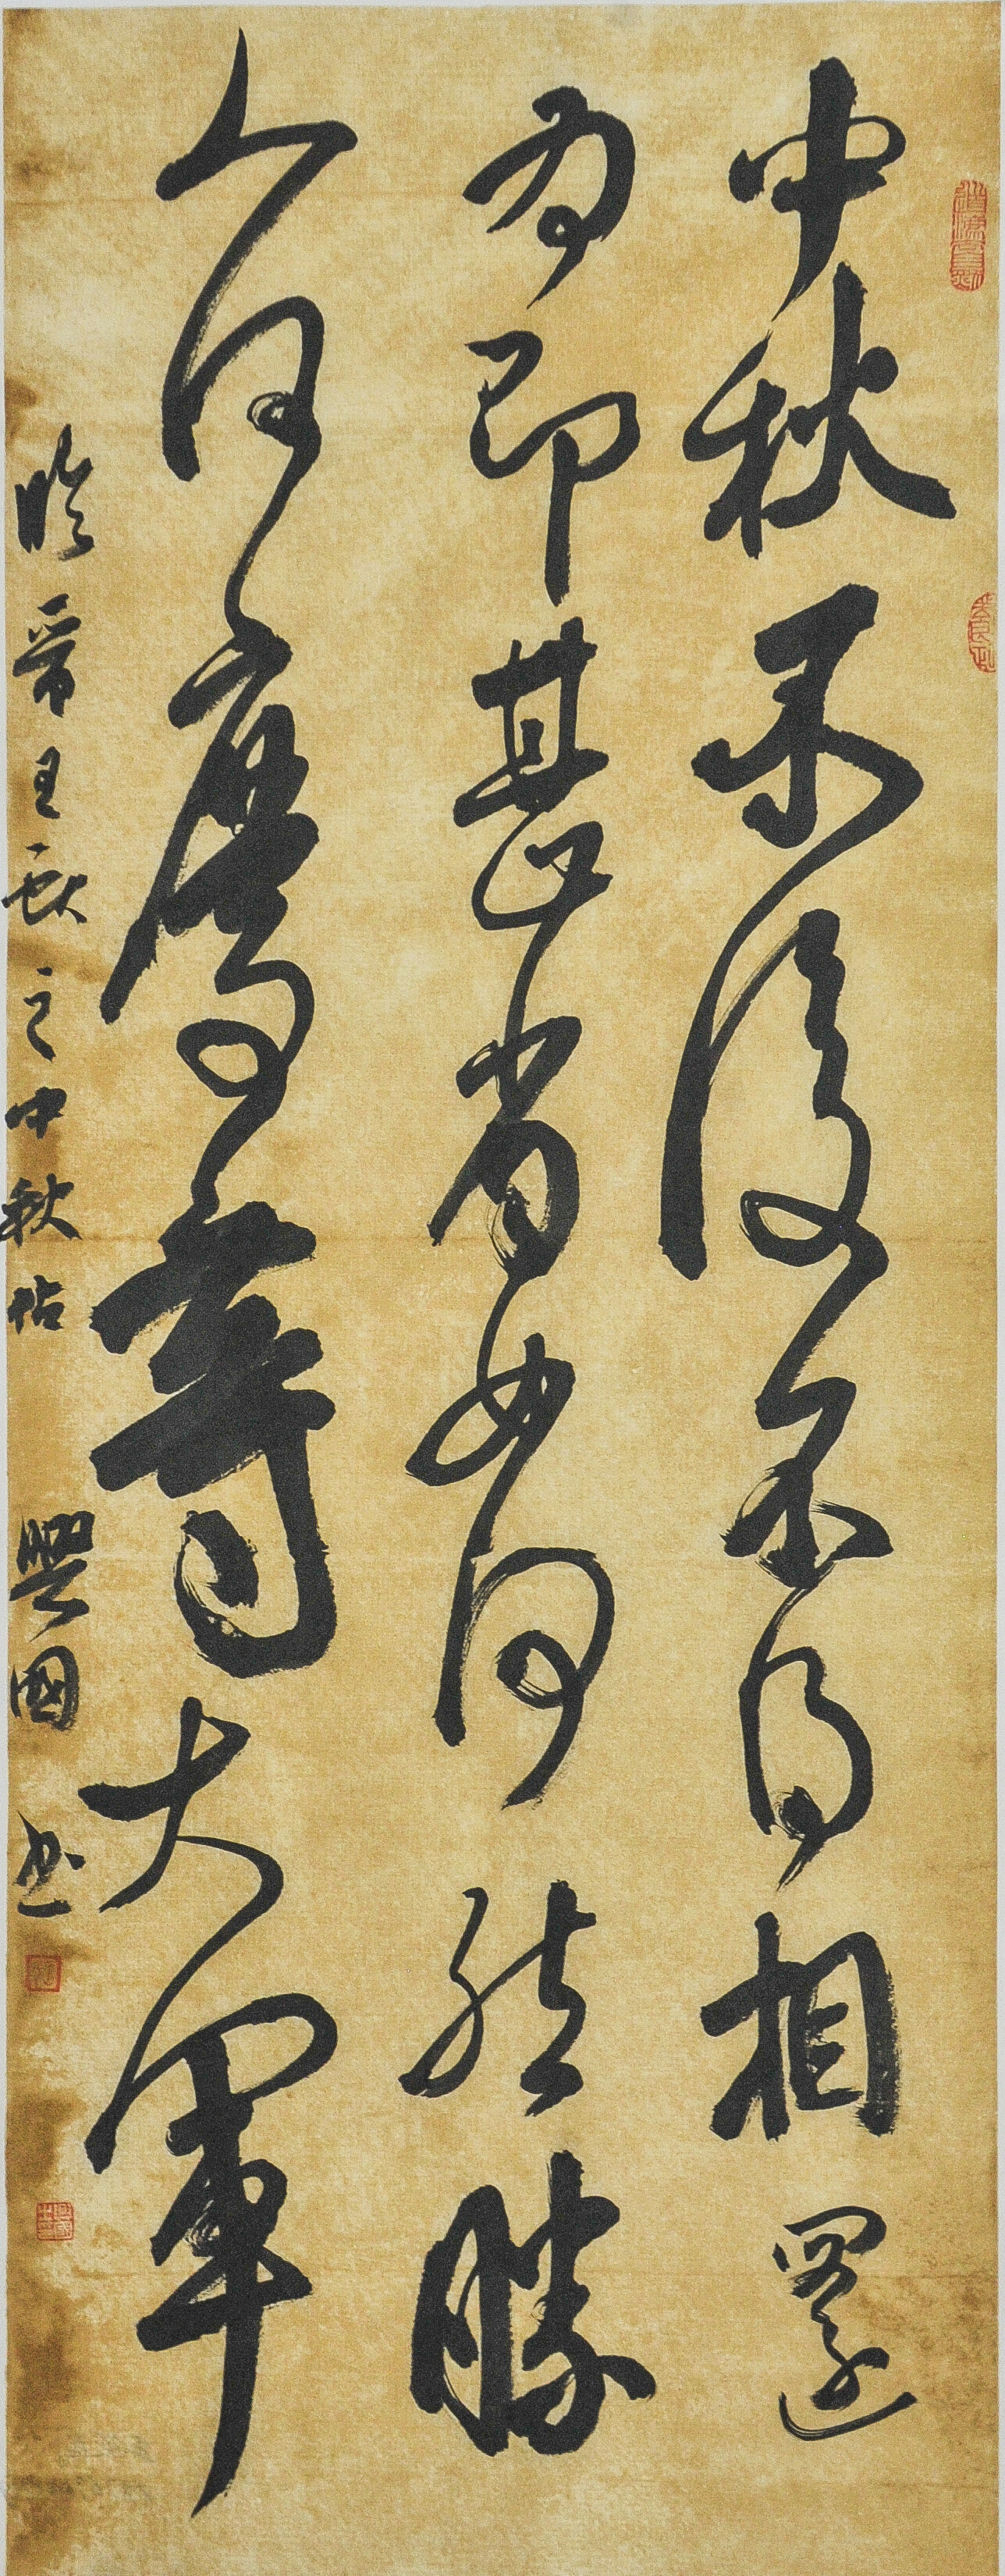 中秋不復不得相還
為即甚省如何然勝
人何慶等大軍
臨晉王獻之中秋帖 興國書